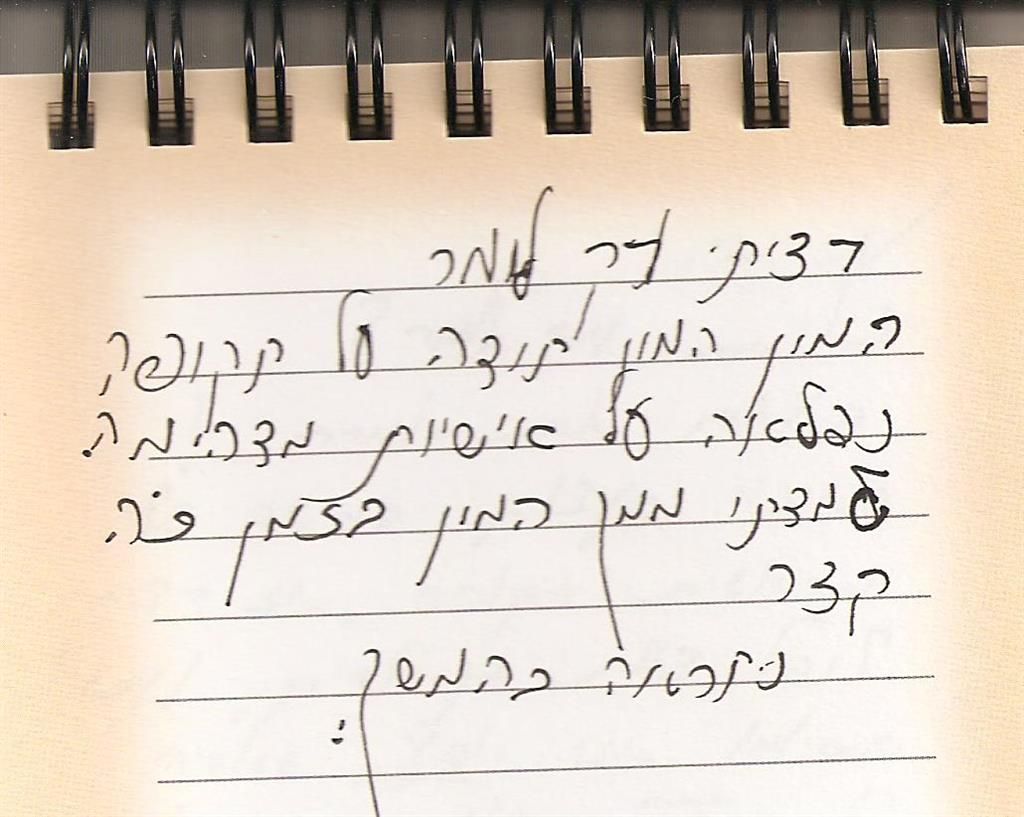 רציתי רק לומר
המון המון תודה על תקופה
נפלאה על אישיות מדהימה.
למדתי ממך המון בזמן כ"כ
קצר
נתראה בהמשך
: